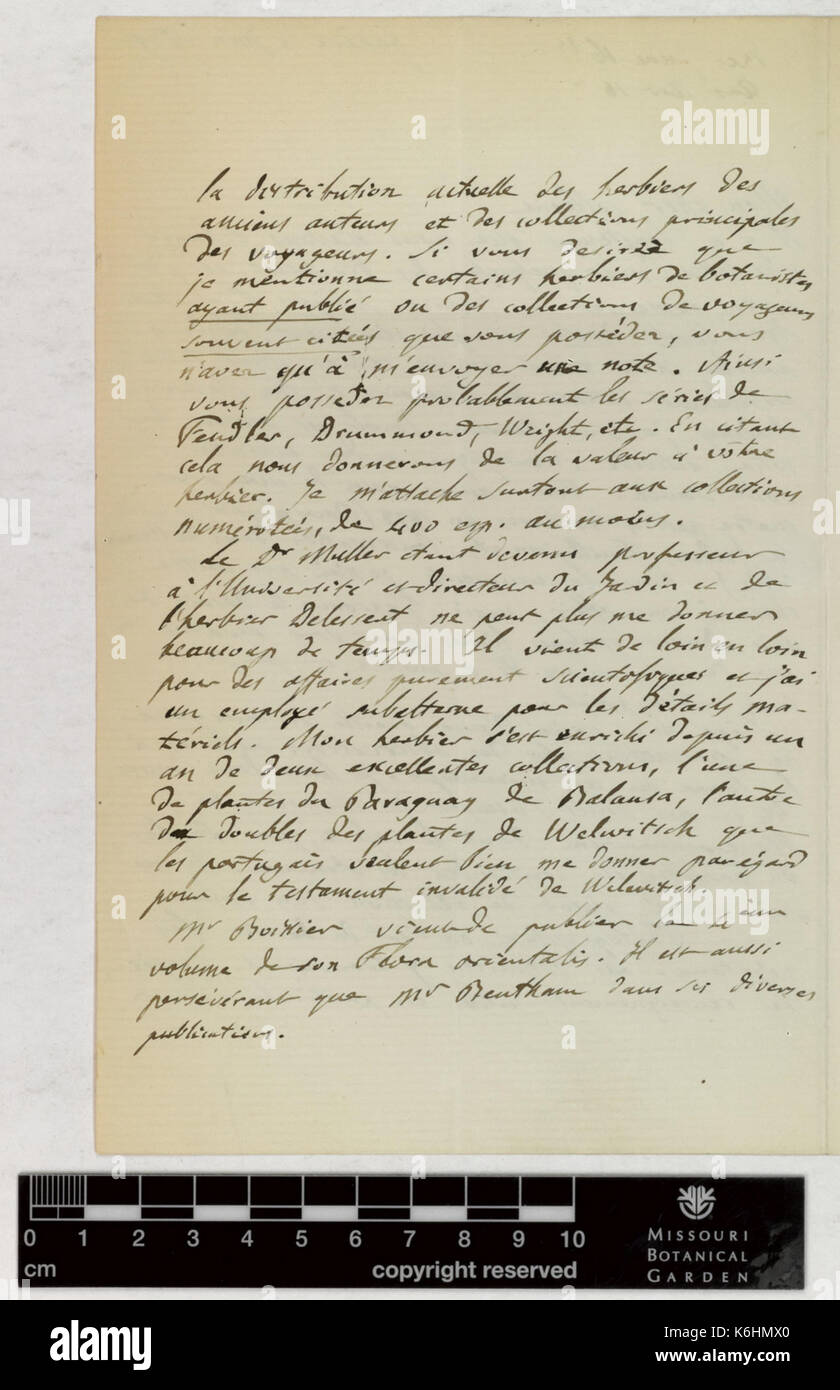 la distribution actuelle des herbiers des
anciens auteurs et des collections principales
des voyageurs. Si vous desirez que
je mentionne certains herbiers de botanistes
ayant publié ou des collections de voyageurs
souvent citées que vous possédez, vous
n'avez qu'à m'envoyer une note. Ainsi
vous possedez probablement les séries de
Fendler, Drummond, Wright, etc. En citant
cela nous donnerons de la valeur à votre
herbier. Je m'attache surtout aux collections
numérotées, de 400 esp. au moins.
Le Dr Muller etant devenu professeur
à l'Université et directeur du Jardin et de
l'herbier Delessert ne peut plus me donner
beaucoup de temps. Il vient de loin en loin
pour des affaires purement scientifiques et j'ai
un employé subalterne pour les détails ma-
tériels. Mon herbier s'est enrichi depuis un
an de deux excellentes collections, l'une
de plantes du Paraguay de Balansa, l'autre
de doubles des plantes de Welwitsch que
les portugais veulent bien me donner par égard
pour le testament invalidé de Welwitsch.
Mr Boissier vient de publier le
volume de son Flora orientalis. Il est aussi
persévérant que Mr Bentham dans ses diverses
publications.
0 1 2 3 4 5 6 7 8 9 10
cm
copyright reserved
MISSOURI
BOTANICAL
GARDEN
a
alamy stock photo
alamy
Image ID: K6HMX0
www.alamy.com